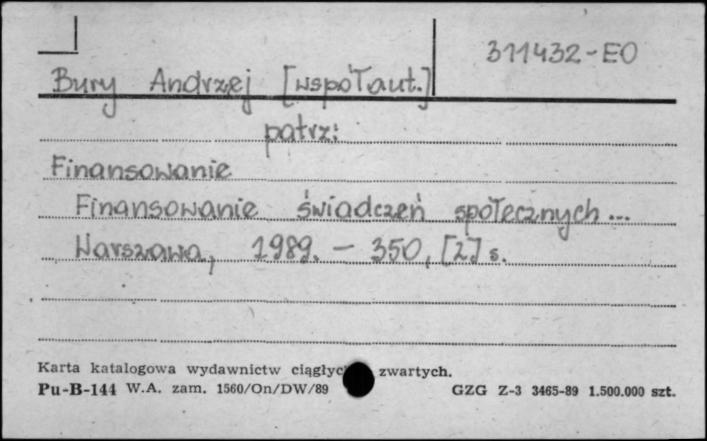 311432-EO
Bury Andrzej [współaut.]
patrz:
Finansowanie
Finansowanie świadczeń społecznych...
Warszawa, 1989. – 350, [2] s.
Karta katalogowa wydawnictw ciągłyc zwartych.
Pu-B-144 W.A. zam. 1560/On/DW/89 GZG Z-3 3465-89 1.500.000 szt.